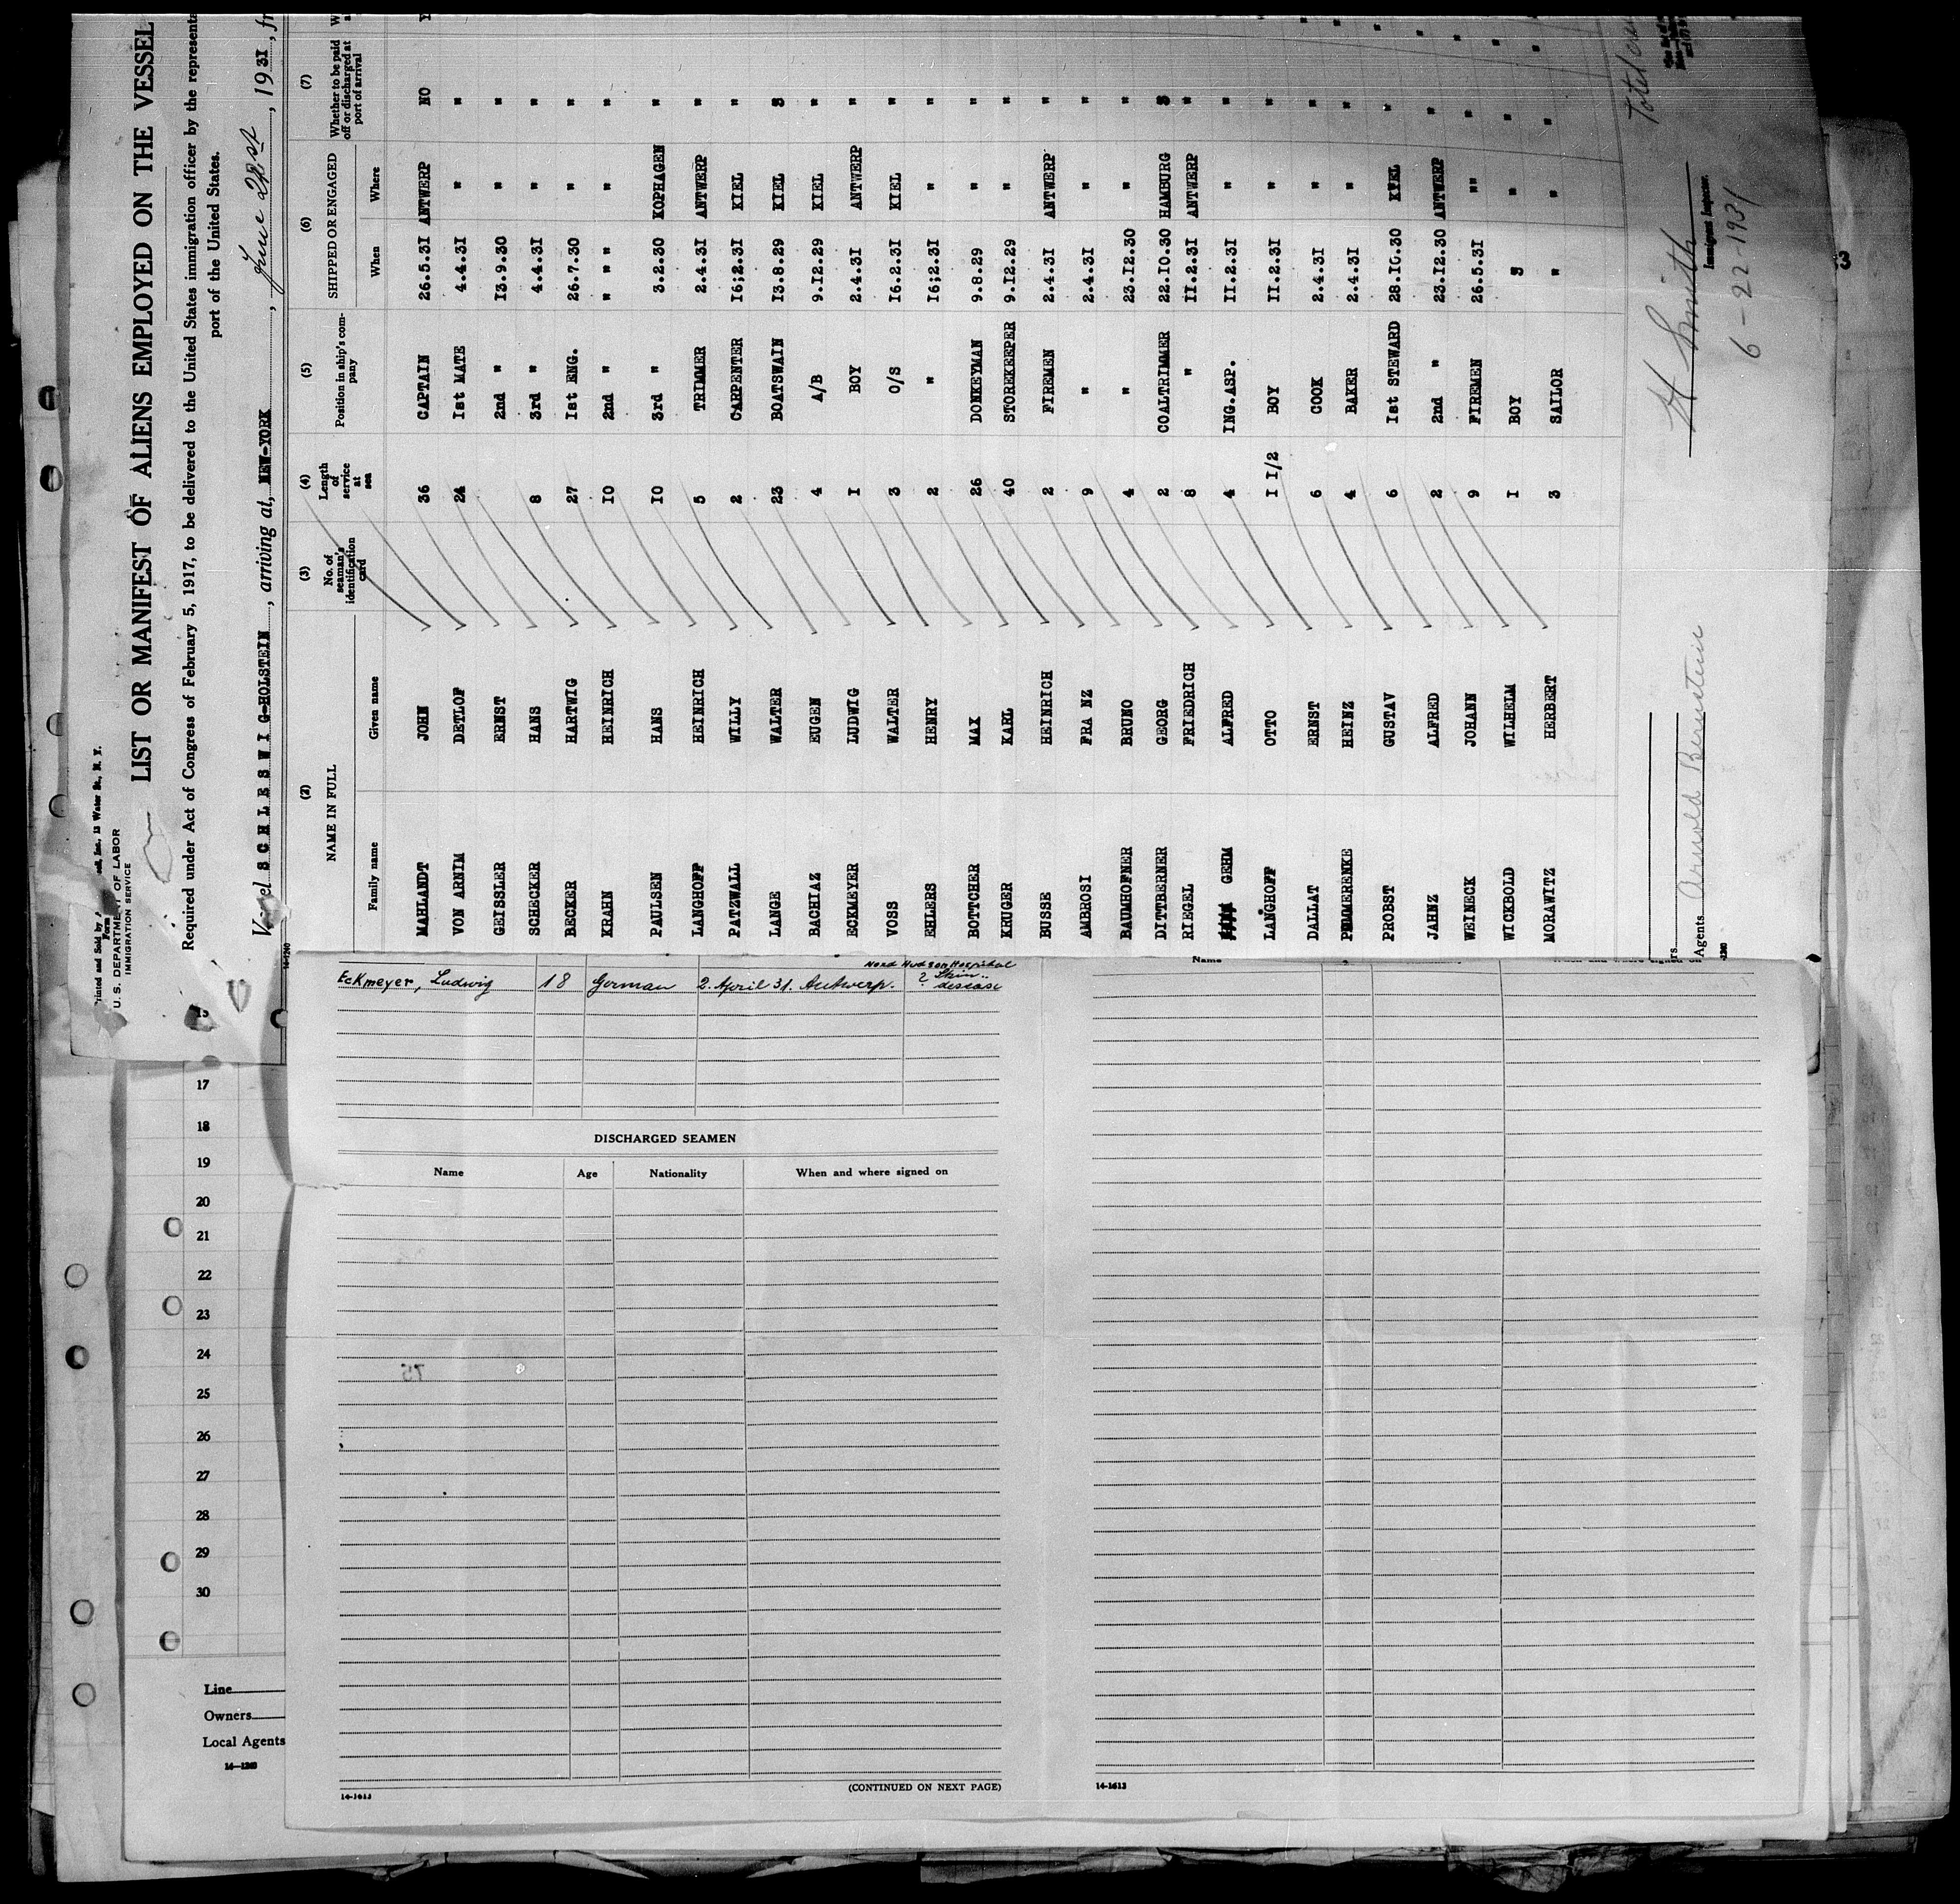 Printed and Sold by
Form
U. S. DEPARTMENT OF LABOR
IMMIGRATION SERVICE
LIST OR MANIFEST OF ALIENS EMPLOYED ON THE VESSEL
Required under Act of Congress of February 5, 1917, to be delivered to the United States immigration officer by the representa
port of the United States.
Vessel SCHLESWIG-HOLSTEIN, arriving at, NEW-YORK, June 22st, 1931, fr
(2) (3) (4) (5) (6) (7)
NAME IN FULL No. of seaman's identification card Length of service at sea Position in ship's company SHIPPED OR ENGAGED Whether to be paid off or discharged at port of arrival
Family name Given name When Where
MAHLANDT JOHN 36 CAPTAIN 26.5.3I ANTWERP NO Y
VON ARNIM DETLOF 24 Ist MATE 4.4.3I " "
GEISSLER ERNST 2nd " I3.9.30 " "
SCHECKER HANS 8 3rd " 4.4.3I " "
BECKER HARTWIG 27 Ist ENG. 26.7.30 " "
KRAHN HEINRICH IO 2nd " " " " " "
PAULSEN HANS IO 3rd " 3.2.30 KOPHAGEN "
LANGHOFF HEINRICH 5 TRIMMER 2.4.3I ANTWERP "
PATZWALL WILLY 2 CARPENTER I6;2.3I KIEL "
LANGE WALTER 23 BOATSWAIN I3.8.29 KIEL "
BACHIAZ EUGEN 4 A/B 9.I2.29 KIEL "
ECKMEYER LUDWIG I BOY 2.4.3I ANTWERP "
VOSS WALTER 3 O/S I6.2.3I KIEL "
EHLERS HENRY 2 " I6;2.3I " "
BOTTCHER MAX 26 DONKEYMAN 9.8.29 " "
KRUGER KARL 40 STOREKEEPER 9.I2.29 " "
BUSSE HEINRICH 2 FIREMEN 2.4.3I ANTWERP "
AMBROSI FRA NZ 9 " 2.4.3I " "
BAUMHOFNER BRUNO 4 " 23.I2.30 " "
DITTBERNER GEORG 2 COALTRIMMER 22.IO.30 HAMBURG "
RIEGEL FRIEDRICH 8 " II.2.3I ANTWERP "
GEHM ALFRED 4 ING.ASP. II.2.3I " "
LANGHOFF OTTO I I/2 BOY II.2.3I " "
DALLAT ERNST 6 COOK 2.4.3I " "
POMMERENKE HEINZ 4 BAKER 2.4.3I " "
PROBST GUSTAV 6 Ist STEWARD 28.IO.30 KIEL "
JAHNZ ALFRED 2 2nd " 23.I2.30 ANTWERP "
WEINECK JOHANN 9 FIREMEN 26.5.3I "" "
WICKBOLD WILHELM I BOY " " "
MORAWITZ HERBERT 3 SAILOR " " "
Agents Arnold Bernstein
H Smith
Immigrant Inspector.
6-22-1931
Total
3
Nord Hudson Hospital
Eckmeyer, Ludwig 18 German 2. April 31. Antwerp. ? Skin disease
DISCHARGED SEAMEN
Name Age Nationality When and where signed on
(CONTINUED ON NEXT PAGE)
14-1613
Name
14-1613
17
18
19
20
21
22
23
24
25
26
27
28
29
30
Line
Owners
Local Agents
14-1240